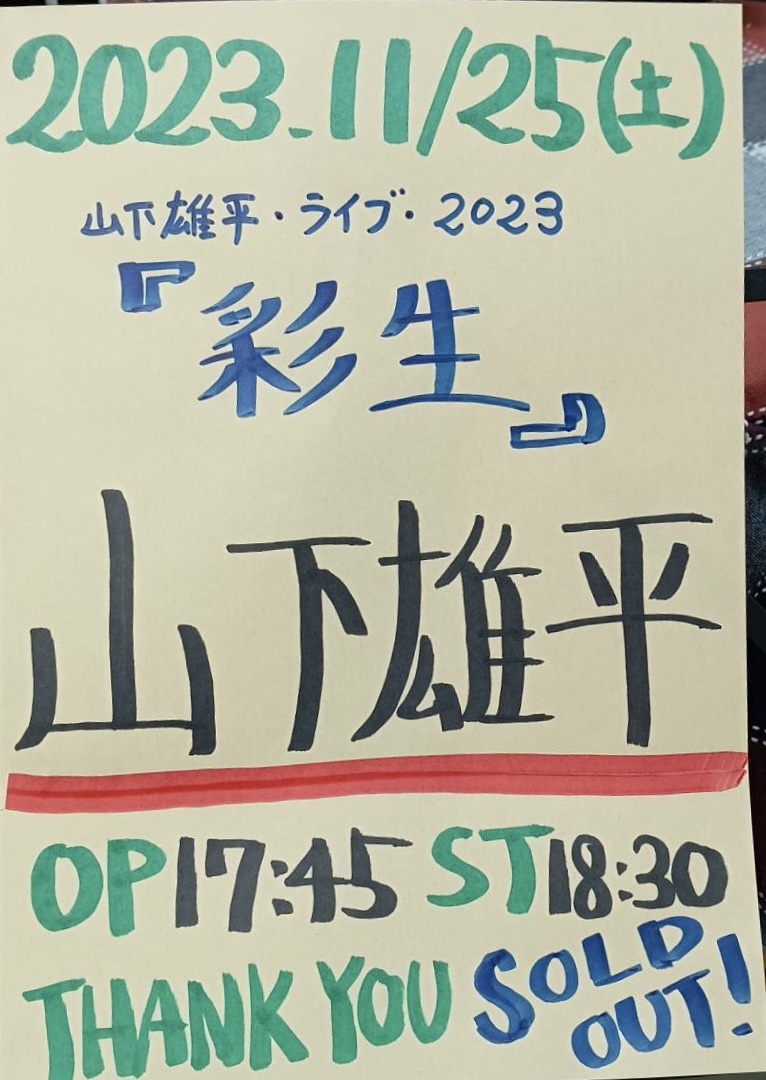 2023.11/25(土)
山下雄平・ライブ・2023
『彩生』
山下雄平
OP17:45 ST18:30
THANK YOU SOLD
OUT!